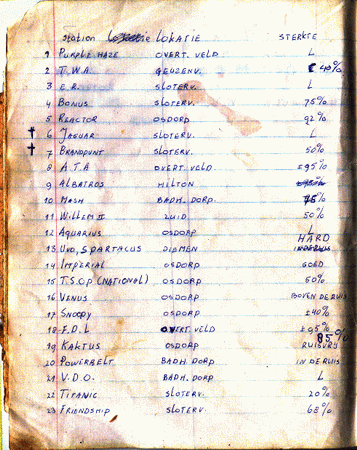 Station Lokatie STERKTE
1 PURPLE HAZE OVERT. VELD L
2 T.W.A. GEUZENV. 40%
3 E.R. SLOTERV. L
4 BONUS SLOTERV. 75%
5 REACTOR OSDORP 92%
† 6 JAGUAR SLOTERV. L
† 7 BRANDPUNT SLOTERV. 50%
8 A.T.A OVERT. VELD ±95%
9 ALBATROS HILTON
10 MASH BADH. DORP. 75%
11 WILLEM II ZUID 50%
12 AQUARIUS OSDORP L
13 UVO, SPARTACUS DIEMEN HARD
14 IMPERIAL OSDORP GOED
15 T.S.O.P (NATIONAL) OSDORP 50%
16 VENUS OSDORP BOVEN DE RUIS
17 SNOOPY OSDORP ±40%
18 F.D.L OVERT. VELD ±95% 85%
19 KAKTUS OSDORP RUISVRIJ
20 POWERBELT BADH DORP IN DE RUIS
21 V.D.O. BADH. DORP L
22 TITANIC SLOTERV. 20%
23 FRIENDSHIP SLOTERV. 68%